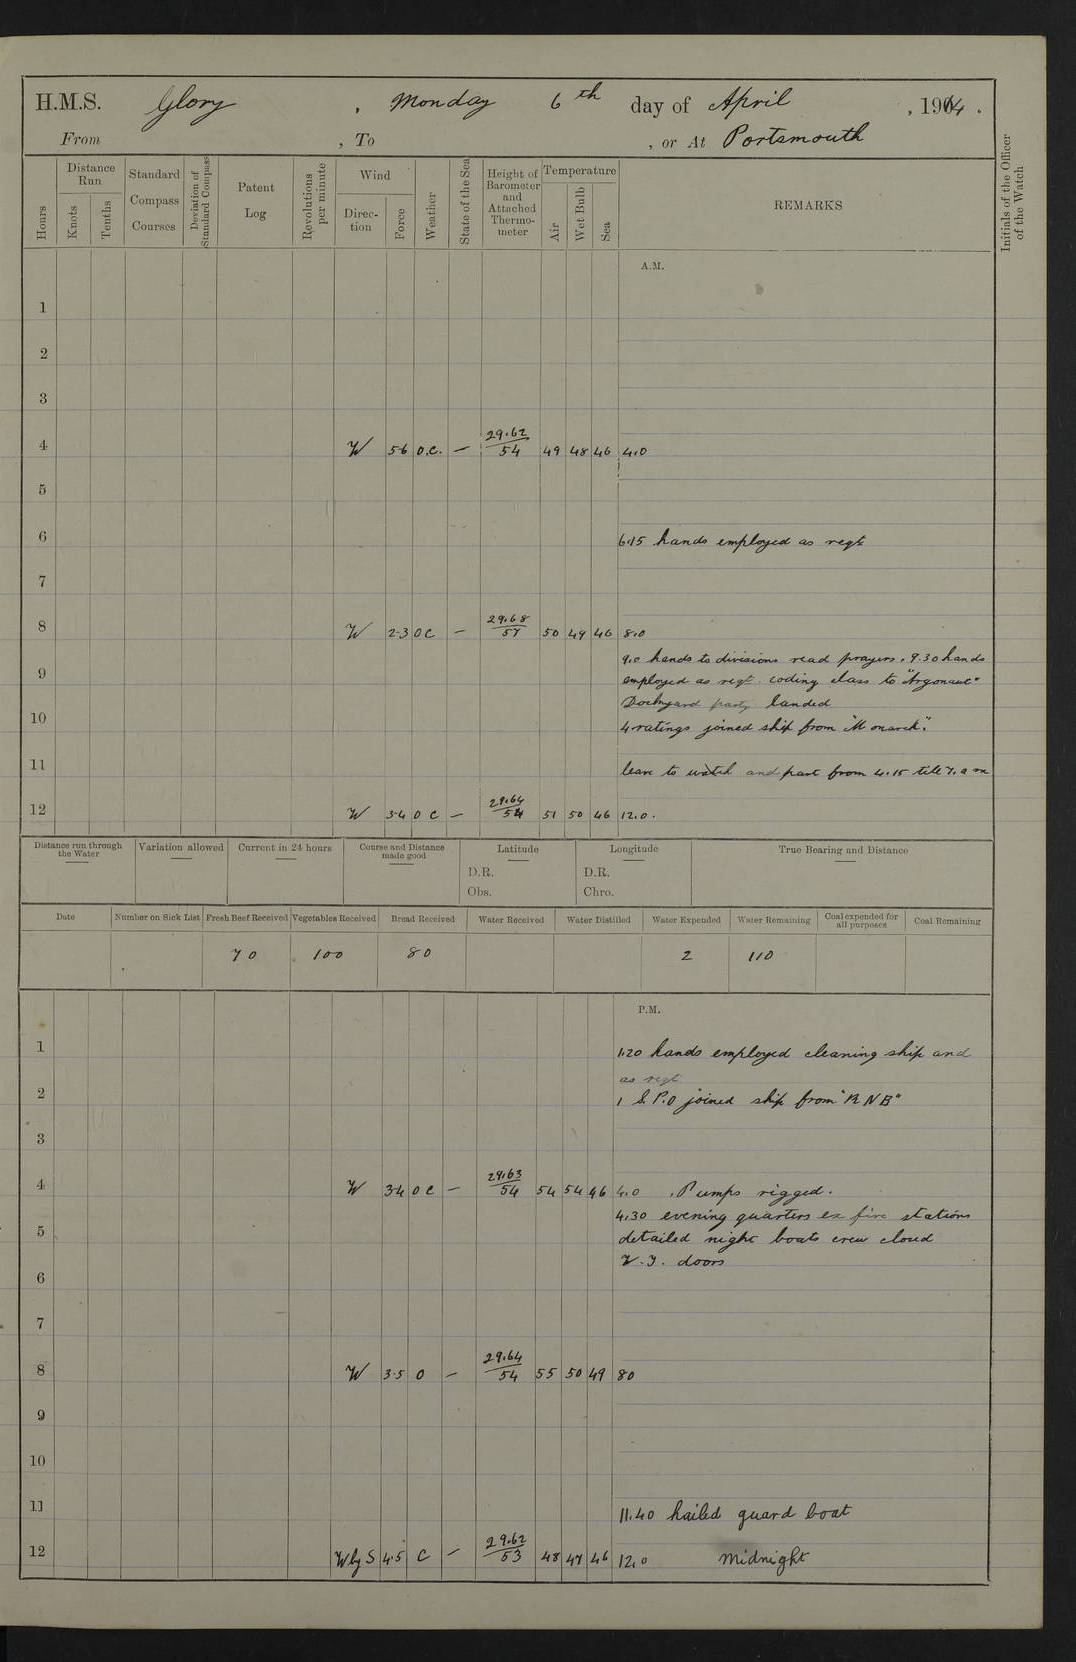 H.M.S. Glory , Monday 6th day of April , 1914 .
From , To , or At Portsmouth
Hours
Distance Run
Knots
Tenths
Standard Compass Courses
Deviation of Standard Compass
Patent Log
Revolutions per minute
Wind
Direc-tion
Force
Weather
State of the Sea
Height of Barometer and Attached Thermo-meter
Temperature
Air
Wet Bulb
Sea
REMARKS
Initials of the Officer of the Watch
A.M.
1
2
3
4 W 5.6 O.C. — 29.62/54 49 48 46 4.0
5
6 6.15 hands employed as reqte
7
8 W 2.3 O C — 29.68/57 50 49 46 8.0
9.0 hands to divisions read prayers. 9.30 hands
9 employed as reqte coding class to "Argonaut"
Dockyard party landed
10 4 ratings joined ship from "Monarch".
11 leave to watch and part from 4.15 till 7. a m
12 W 3.4 O C — 29.64/54 51 50 46 12.0.
Distance run through the Water
Variation allowed
Current in 24 hours
Course and Distance made good
Latitude
D.R.
Obs.
Longitude
D.R.
Chro.
True Bearing and Distance
Date Number on Sick List Fresh Beef Received Vegetables Received Bread Received Water Received Water Distilled Water Expended Water Remaining Coal expended for all purposes Coal Remaining
70 100 80 2 110
P.M.
1 1.20 hands employed cleaning ship and
as reqt
2 1 S.P.O joined ship from "RNB"
3
4 W 3.4 O C — 29.63/54 54 54 46 4.0 . Pumps rigged.
4.30 evening quarters ex fire stations
5 detailed night boats crew closed
W.T. doors
6
7
8 W 3.5 O — 29.64/54 55 50 49 80
9
10
11 11.40 hailed guard boat
12 W by S 4.5 C — 29.62/53 48 47 46 12.0 Midnight